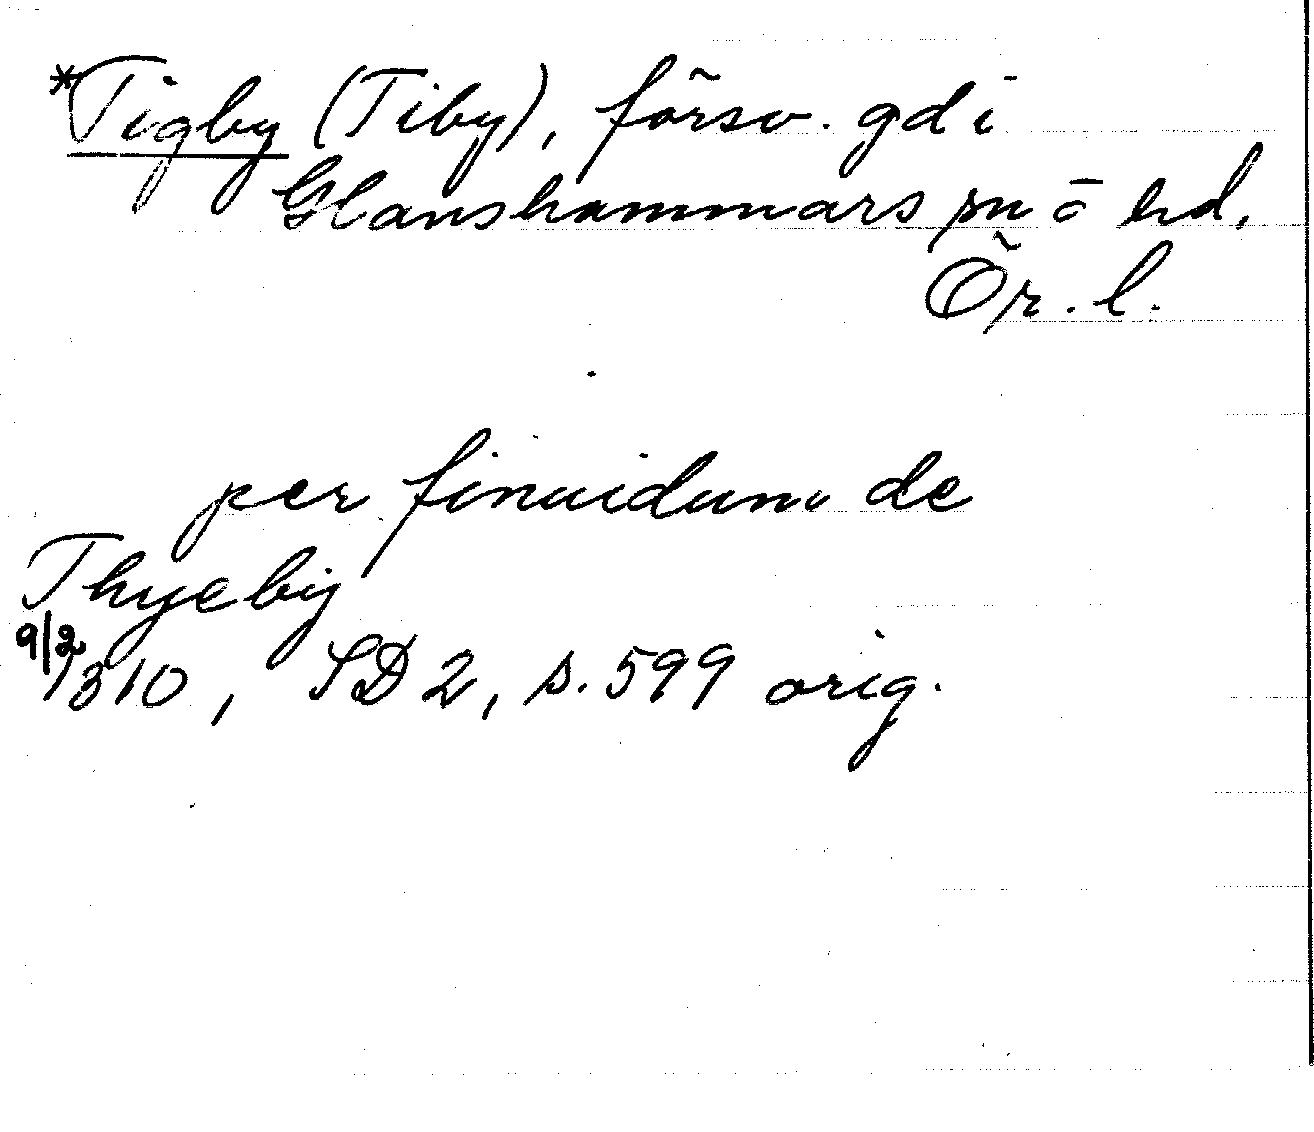 *Tigby (Tiby), försv. gd i
Glanshammars sn ō hd,
Ör. l.
per finuidum de
Thyeby
9/2 1310, SD 2, s. 599 orig.